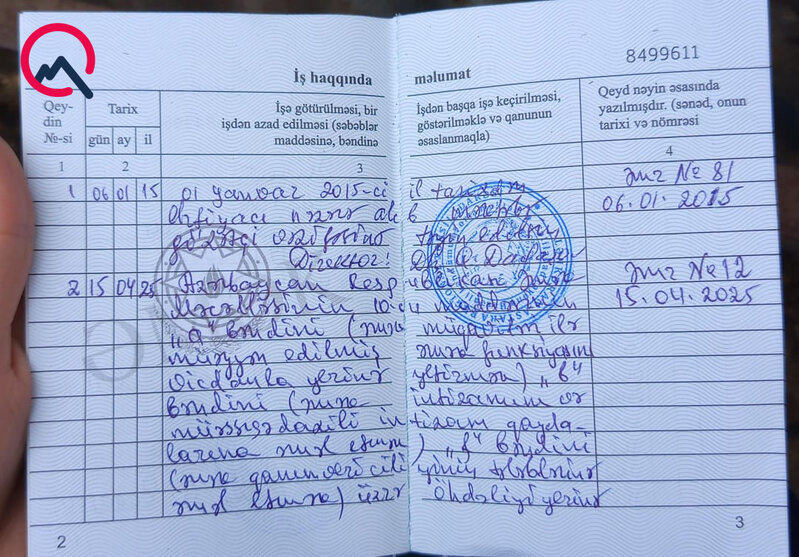 8499611
İş haqqında məlumat
Qey-
din
№-si
Tarix
gün ay il
İşə götürülməsi, bir işdən başqa işə keçirilməsi,
işdən azad edilməsi (səbəblər göstərilməklə və qanunun
maddəsinə, bəndinə əsaslanmaqla)
Qeyd nəyin əsasında
yazılmışdır. (sənəd, onun
tarixi və nömrəsi)
1 2 3 4
1 06 01 15 01 yanvar 2015-ci il tarixdən əmr № 81
06.01.2015
gözətçi vəzifəsinə təyin edilmiş
Direktor:
2 15 04 25 Azərbaycan Respublikası Əmək əmr № 12
Məcəlləsinin 10-cu maddəsinin 15.04.2025
"a" bəndini (əmək müqaviləsi ilə
müəyyən edilmiş əmək funksiyasını
vicdanla yerinə yetirmək) "b"
bəndini (əmək intizamına və
müəssisədaxili intizam qayda-
larına əməl etmək), bəndini
(əmək qanunvericiliyinin tələblərinə
əməl etmək) üzrə öhdəliyi yerinə
2
3